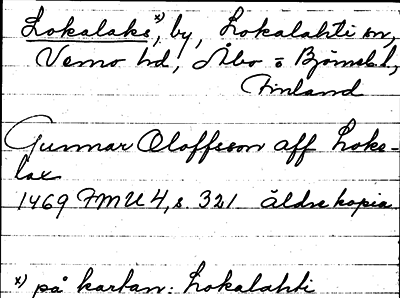 Lokalaks ×), by, Lokalahti sn,
Vemo hd, Åbo o Björneb. l,
Finland
Gunnar Oloffsson aff Loke-
lax
1469 FMU 4, s. 321 äldre kopia
×) på kartan: Lokalahti